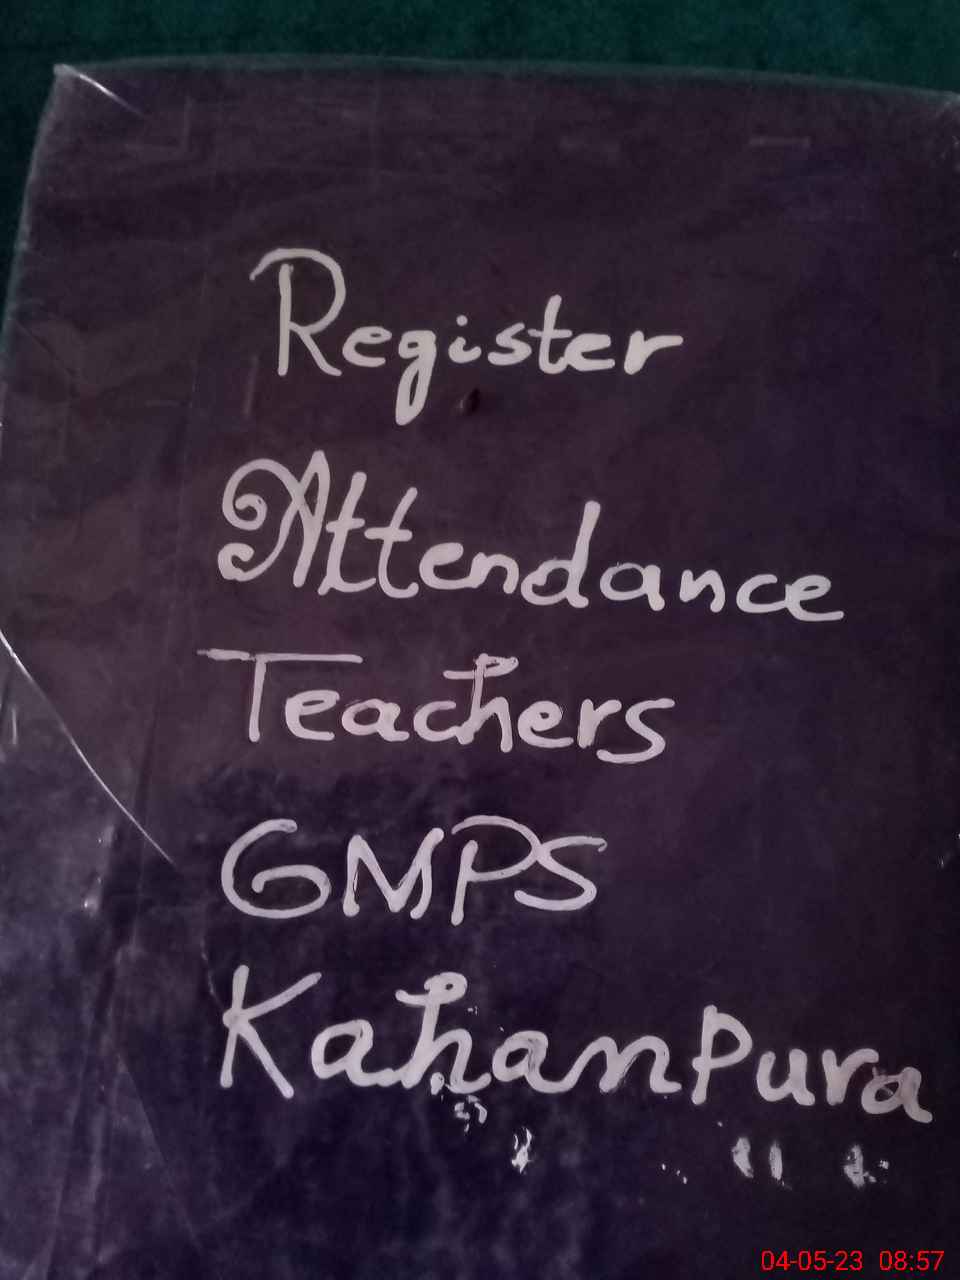 Register
Attendance
Teachers
GMPS
Kahanpura
04-05-23 08:57